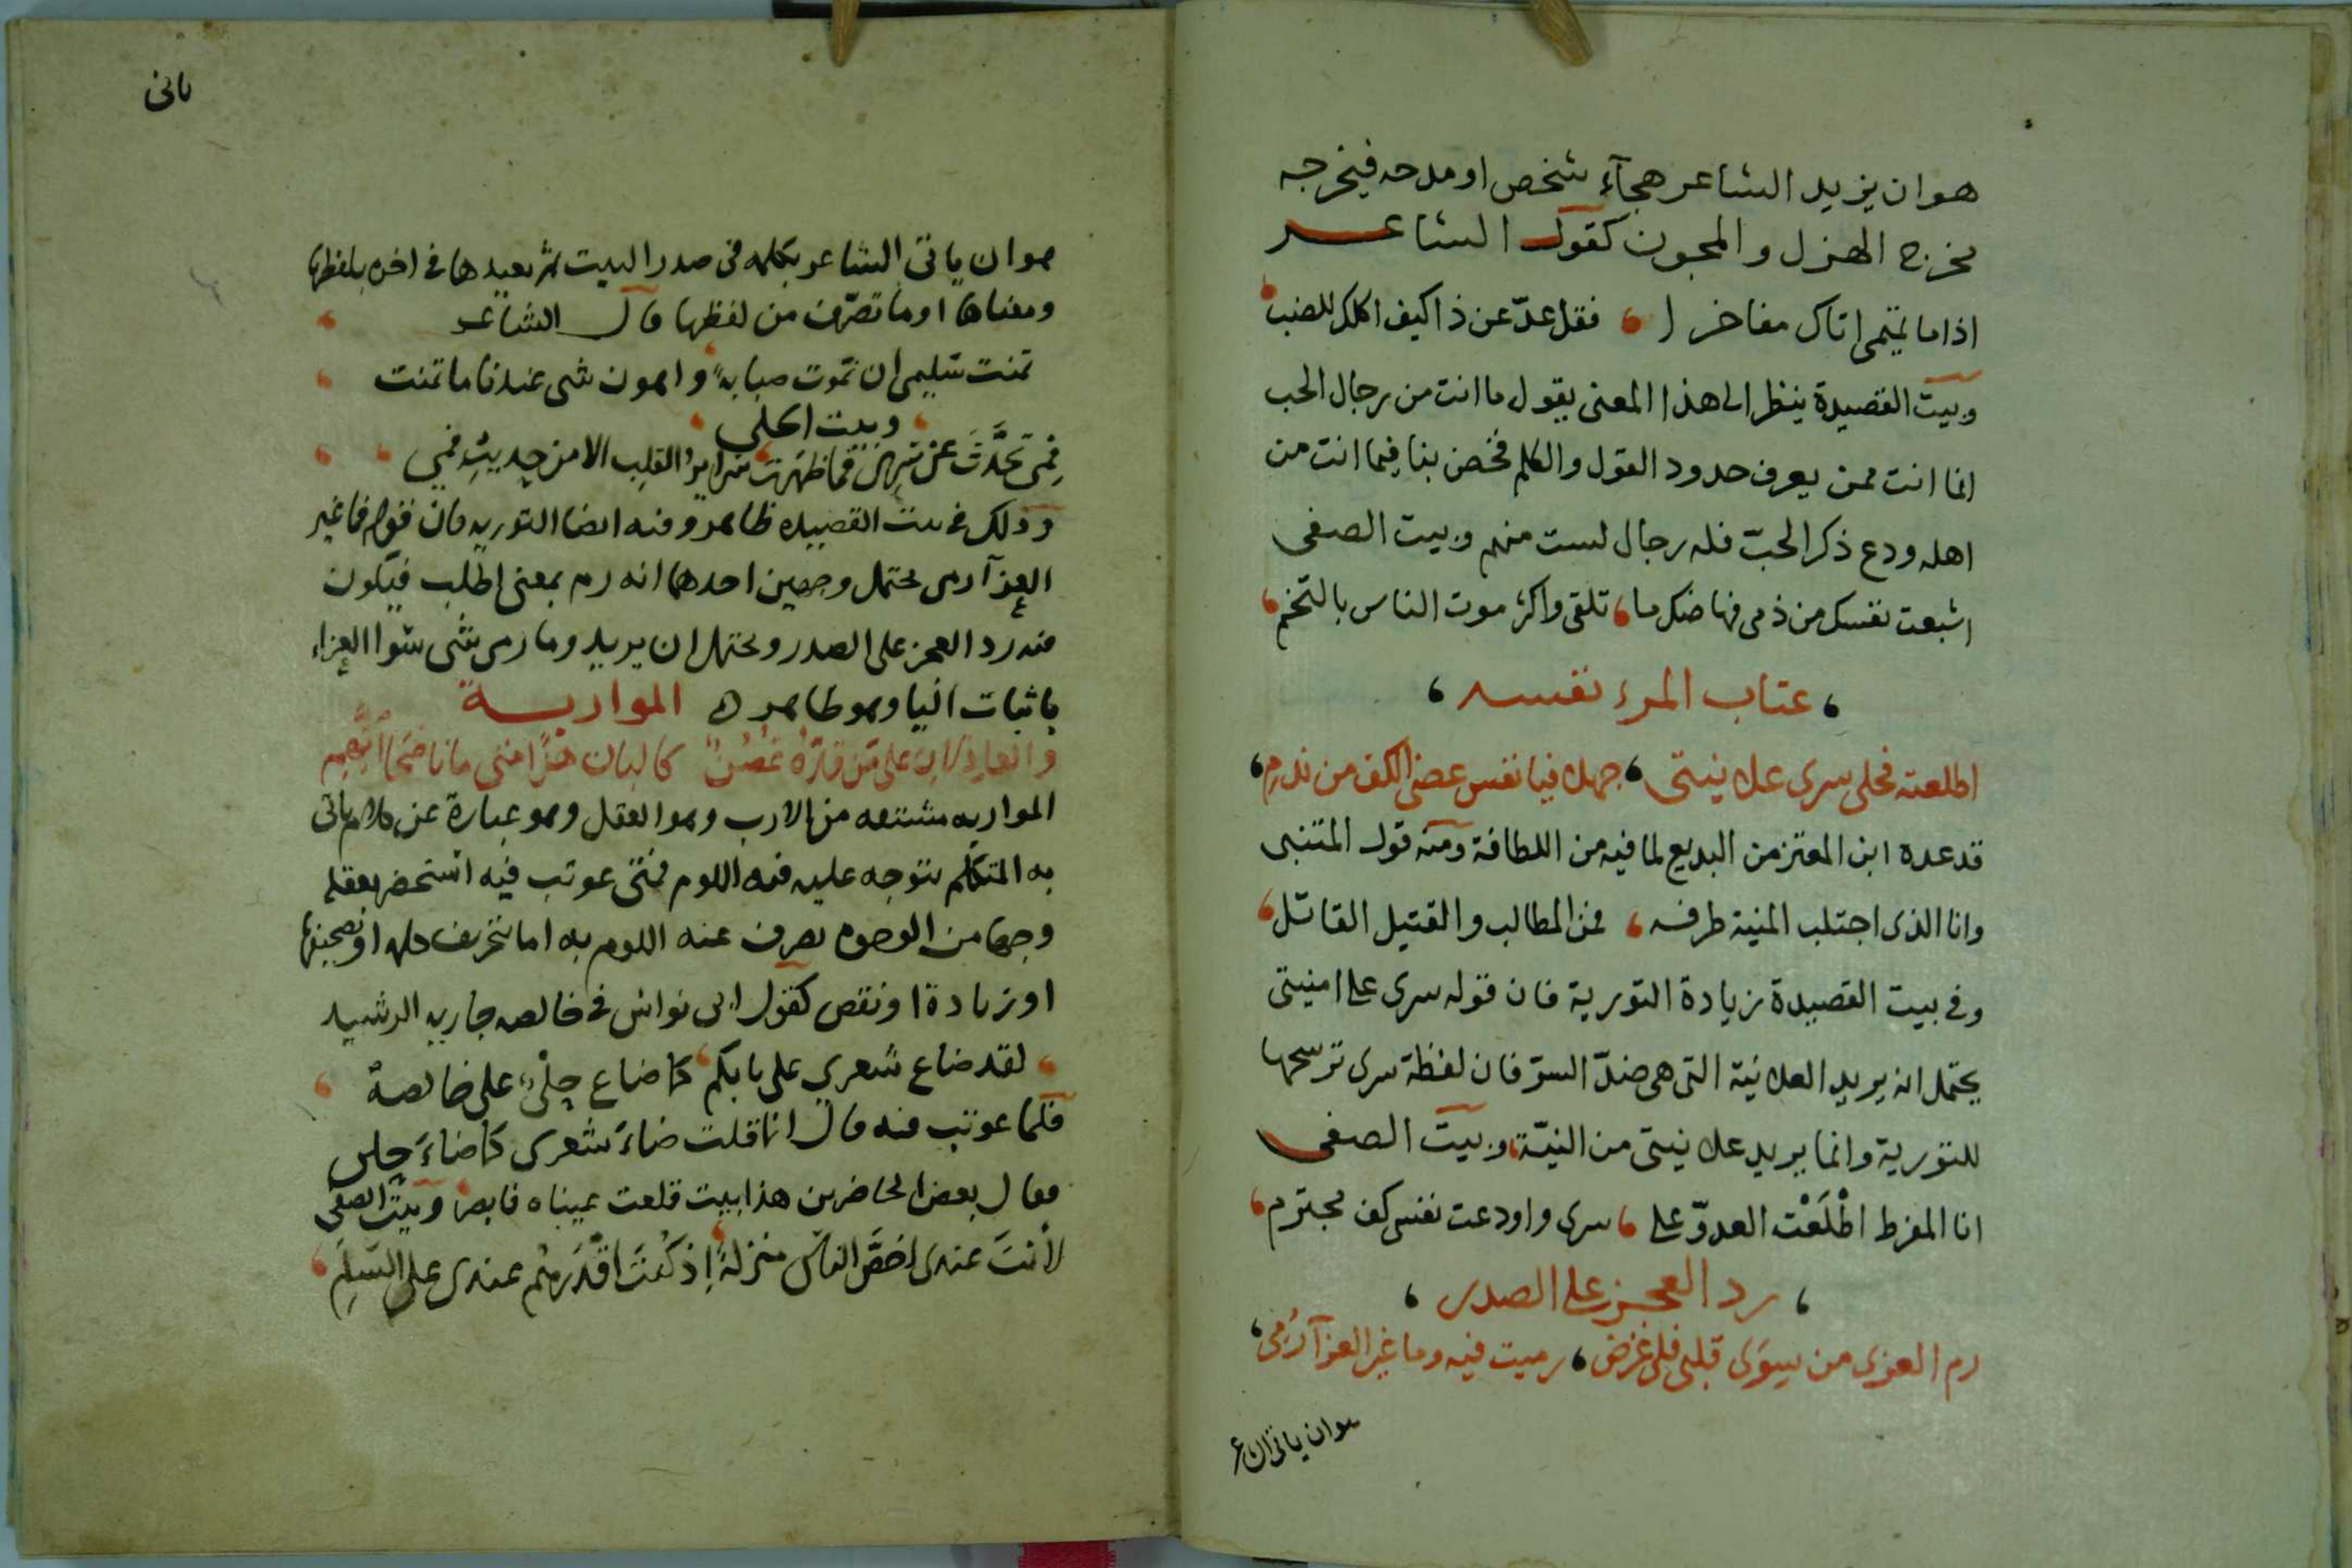 هو ان يزيد الشاعر هجآء شخص او مدحه فيخرجه
مخرج الهزل والمجون كقول الشاعر
اذا ما تميمى اتاك مفاخرا فقل عدّ عن ذا كيف اكلك للضب
وبيت القصيدة ينظر الى هذا المعنى يقول ما انت من رجال الحب
انما انت ممن يعرف حدود القول والكلم فخض بنا فيما انت من
اهله ودع ذكر الحبّ فله رجال لست منهم وبيت الصفى
اشبعت نفسك من ذمى فهاضك ما تلقى واكثر موت الناس بالتخم
عتاب المرء نفسه
اطلعته فحلى سرى علانيتى جهلا فيا نفس عضى الكف من ندم
قد عده ابن المعتز من البديع لما فيه من اللطافة ومنه قول المتنبى
وانا الذى اجتلب المنية طرفه فمن المطالب والقتيل القاتل
وفى بيت القصيدة زيادة التورية فان قوله سرى على امنيتى
يحتمل انه يريد العلانية التى هى ضدّ السرّ فان لفظة سرى ترشحها
للتورية وانما يريد علا نيتى من النيّة وبيت الصفى
انا المفرط اطْلَعْت العدوّ على سرى واودعت نفسى كف مجترم
رد العجز على الصدر
رم العزى من سِوَى قلبى فلى غرض رميت فيه وما غير العزآ ارُمى
هو ان ياتى الشاعر
ياتى
هو ان ياتى الشاعر بكلمه فى صدر البيت ثم يعيدها فى اخره بلفظها
ومعناها او ما تصرّف من لفظها قال الشاعر
تمنت سُليمى ان تموت صبابةً واهون شى عندنا ما تمنت
وبيت الحلى
فمى تحَدَّثَ عن سِرى فما ظهرت سرايرُ القلِب الا من حديثِ فمي
وذلك فى بيت القصيده ظاهر وفيه ايضا التوريه فان قوله فما غير
العزآ ارمى يحتمل وجهين احدهما انه رم بمعنى اطلب فيكون
فيه رد العجز على الصدر ويحتمل ان يريد وما رمى شى سوا العزاء
باثبات اليا وهو ظاهر ه المواربة
المواربه مشتقه من الارب وهو العقل وهو عبارة عن كلام ياتى
به المتكلم يتوجه عليه فيه اللوم فمتى عوتب فيه استحضر بعقله
وجها من الوجوه يصرف عنه اللوم به اما بتحريف كلمه او تصحيفها
او زيادة او نقص كقول ابى نواس فى خالصه جاريه الرشيد
لقد ضاع شعري على بابكم كما ضاع حِلْىٌ على خالصهْ
فلما عوتب فيه قال انما قلت ضاءَ شعرى كما ضاءَ حلى
فقال بعض الحاضرين هذا بيت قلعت عيناه فابصر وبيت الصفى
لأنتَ عندى اخصَّ الناس منزلةً إذ كنتَ اقْدَرهُم عندى على السَلِمَ